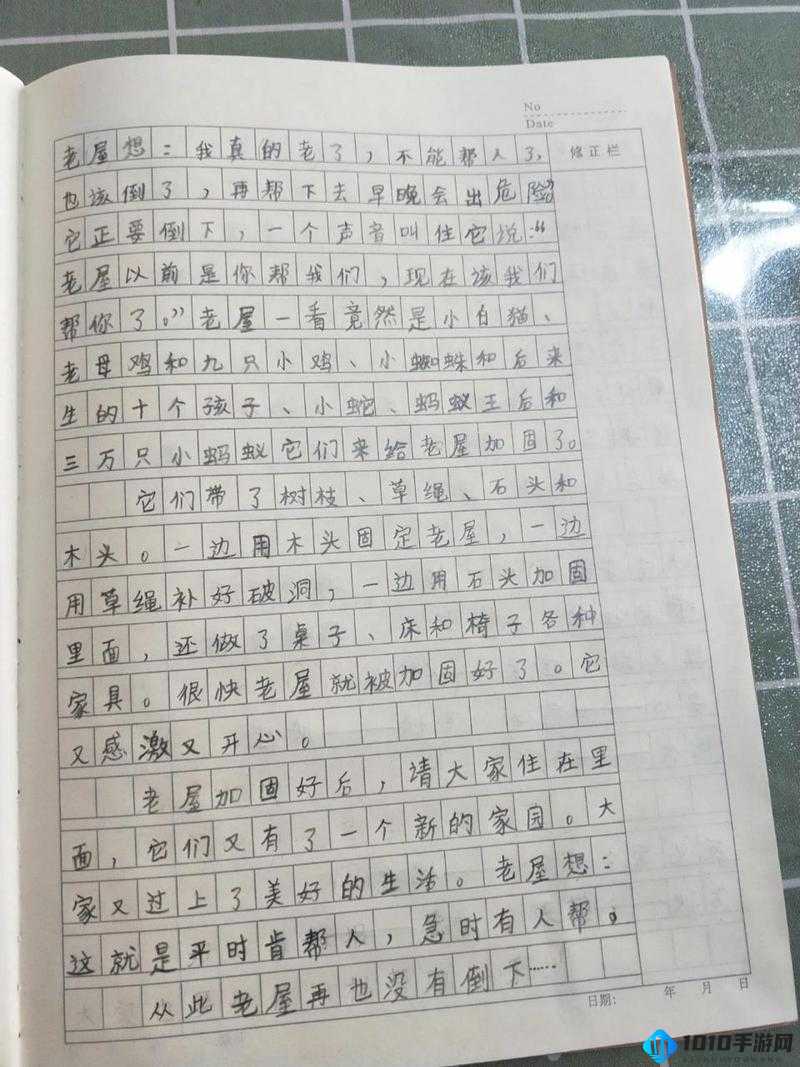 No
Date
修正栏
老屋想：我真的老了，不能帮人了，
也该倒了，再帮下去早晚会出危险”
它正要倒下，一个声音叫住它说：“
老屋以前是你帮我们，现在该我们
帮你了。”老屋一看竟然是小白猫、
老母鸡和九只小鸡、小蜘蛛和后来
生的十个孩子、小蛇、蚂蚁王后和
三万只小蚂蚁它们来给老屋加固了。
它们带了树枝、草绳、石头和
木头。一边用木头固定老屋，一边
用草绳补好破洞，一边用石头加固
里面，还做了桌子、床和椅子各种
家具。很快老屋就被加固好了。它
又感激又开心。
老屋加固好后，请大家住在里
面，它们又有了一个新的家园。大
家又过上了美好的生活。老屋想：
这就是平时肯帮人，急时有人帮。
从此老屋再也没有倒下……
日期： 年 月 日
1010手游网